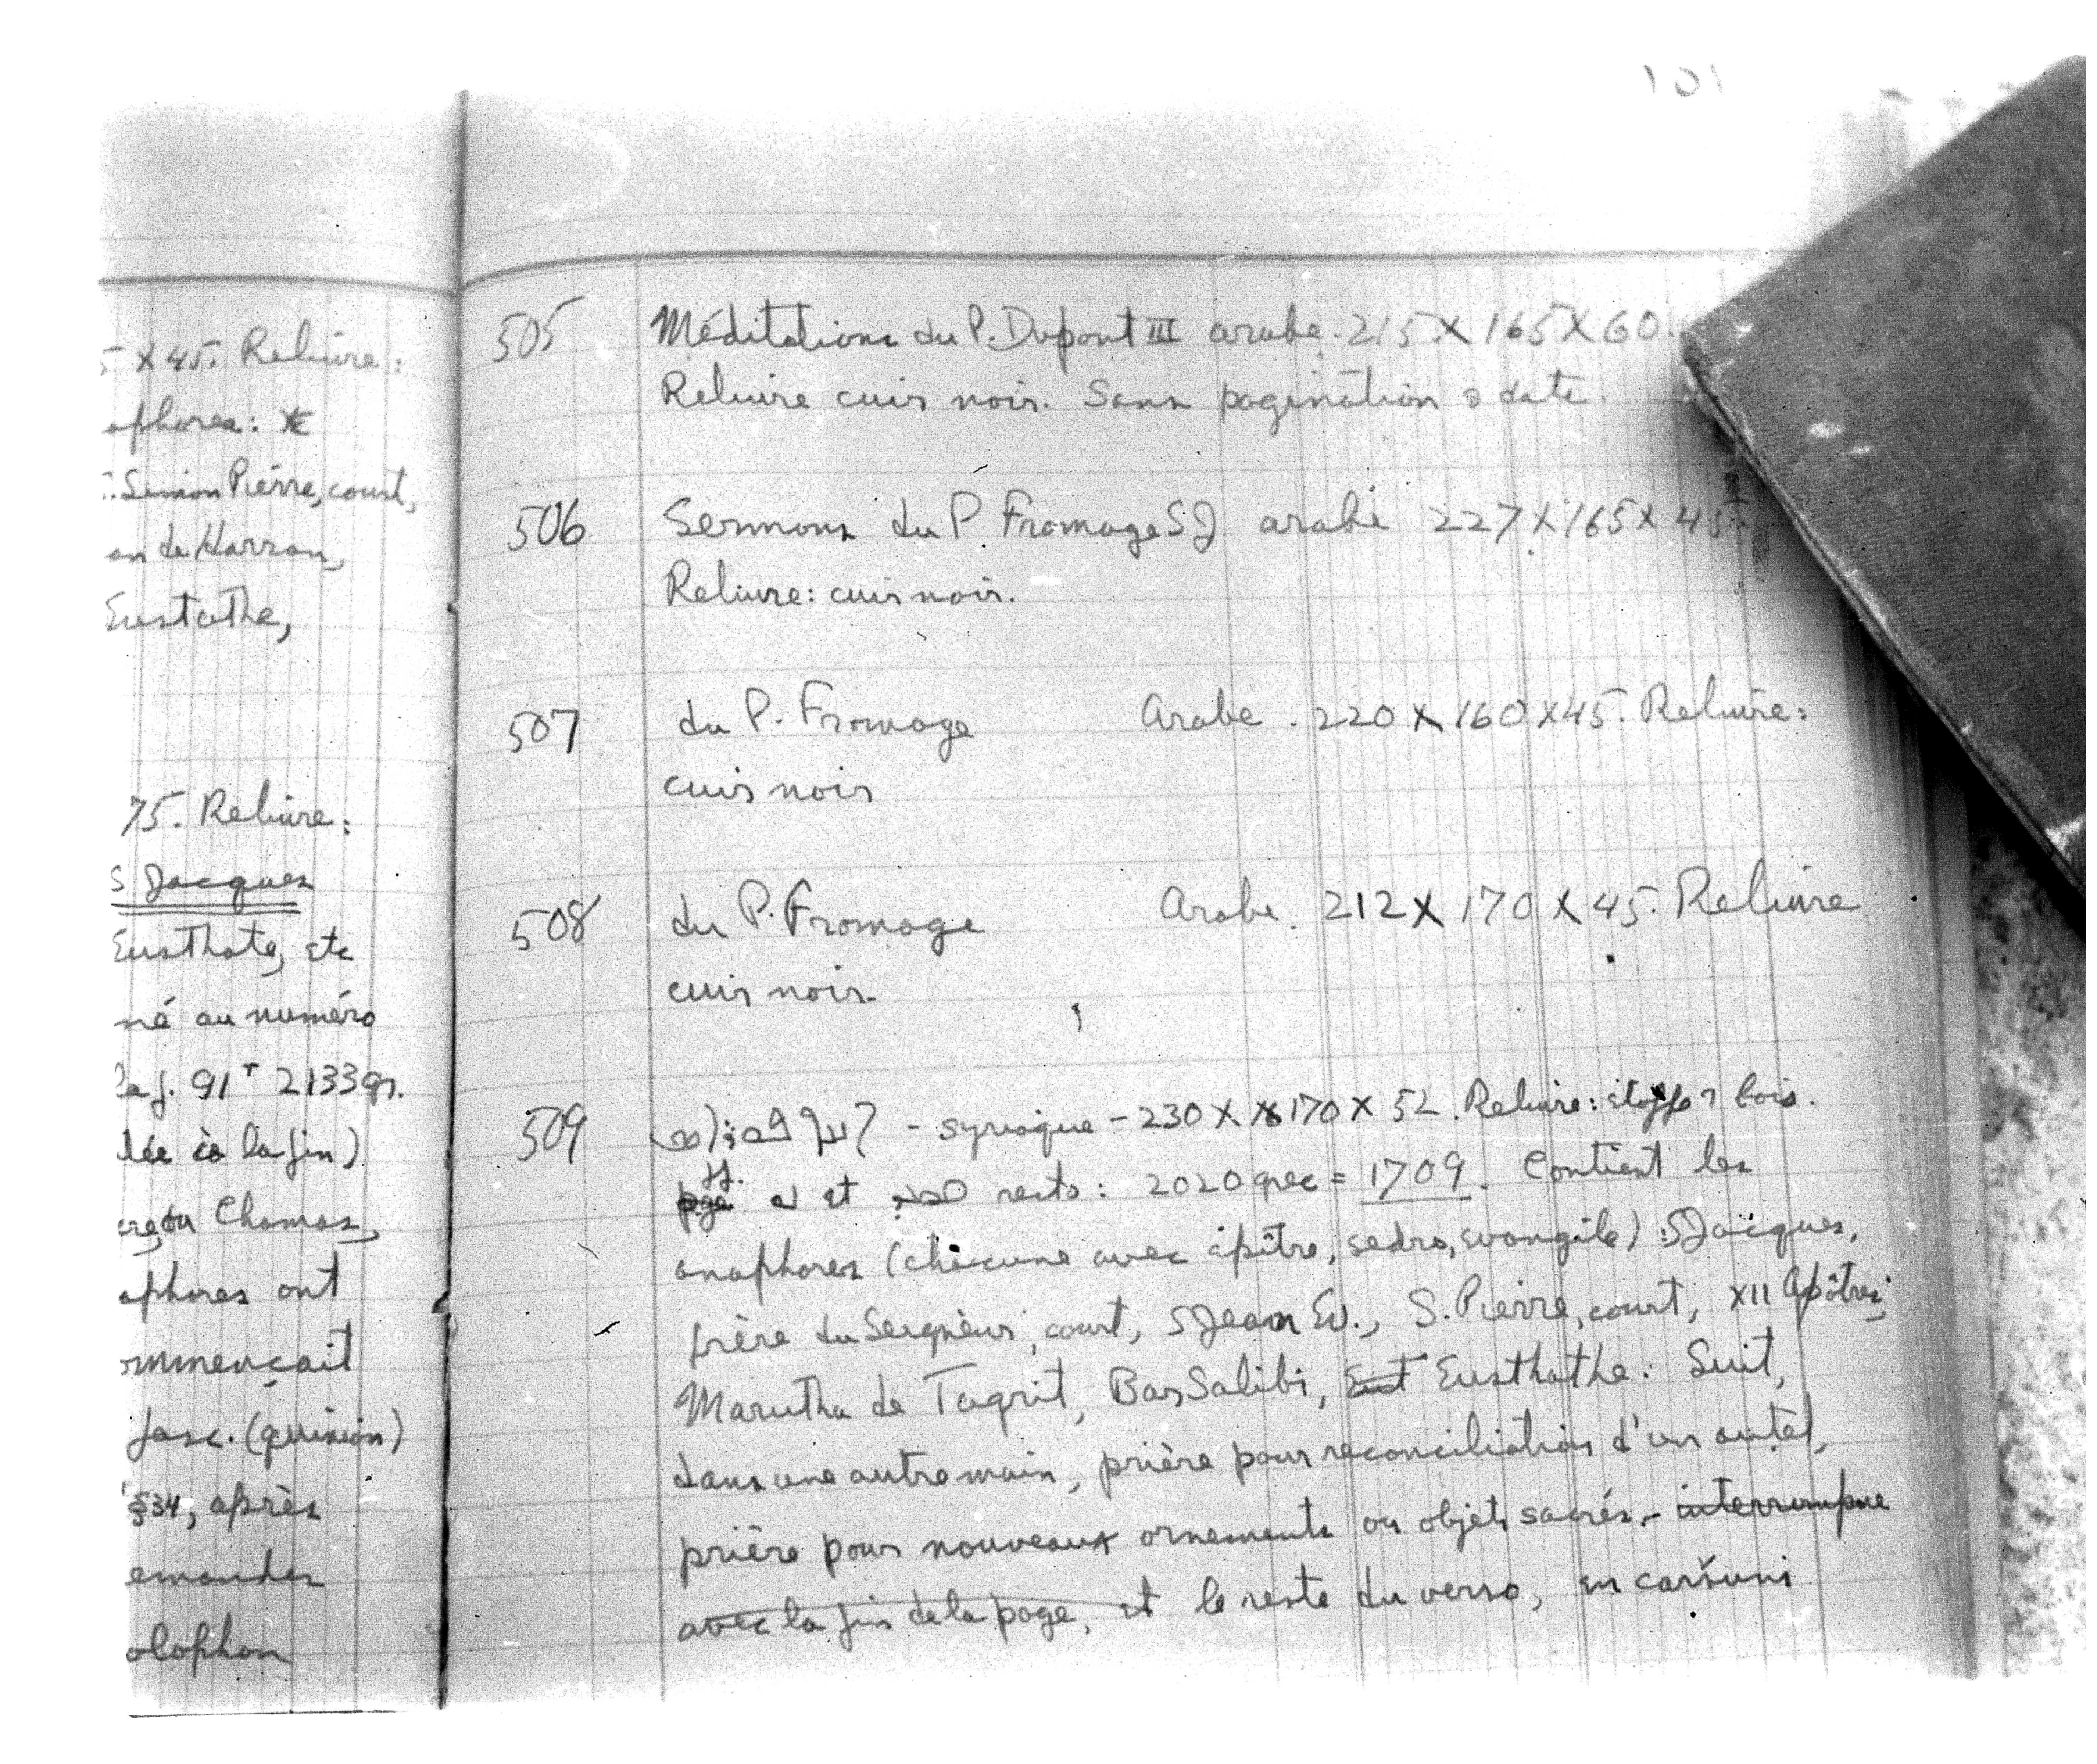 101
5 X 45. Reliure:
ophores:
Simon Pierre, court,
an de Harran,
Eustathe,
75. Reliure:
S Jacques
Eusthate, etc
né au numéro
la f. 91r 2133 gr.
lée à la fin)
ou Chamas,
ophores ont
ommençait
fasc. (quinion)
§34, après
emandes
olophon
505 Méditations du P. Dupont III arabe. 215 X 165 X 60.
Reliure cuir noir. Sans pagination & date.
506 Sermons du P. Fromage SJ arabe 227 X 165 X 45.
Reliure: cuir noir.
507 du P. Fromage Arabe. 220 X 160 X 45. Reliure:
cuir noir
508 du P. Fromage Arabe. 212 X 170 X 45. Reliure
cuir noir.
509 - syriaque - 230 X 170 X 52. Reliure: étoffe & bois.
ff. et recto: 2020 grec = 1709. Contient les
anaphores (chacune avec épître, sedro, évangile): S Jacques,
frère du Seigneur, court, S Jean Ev., S. Pierre, court, XII Apôtres,
Marutha de Tagrit, Bar Salibi, Eust Eusthathe. Suit,
dans une autre main, prière pour reconciliation d'un autel,
prière pour nouveaux ornements ou objets sacrés, - interrompue
avec la fin de la page, et le reste du verso, en caršuni